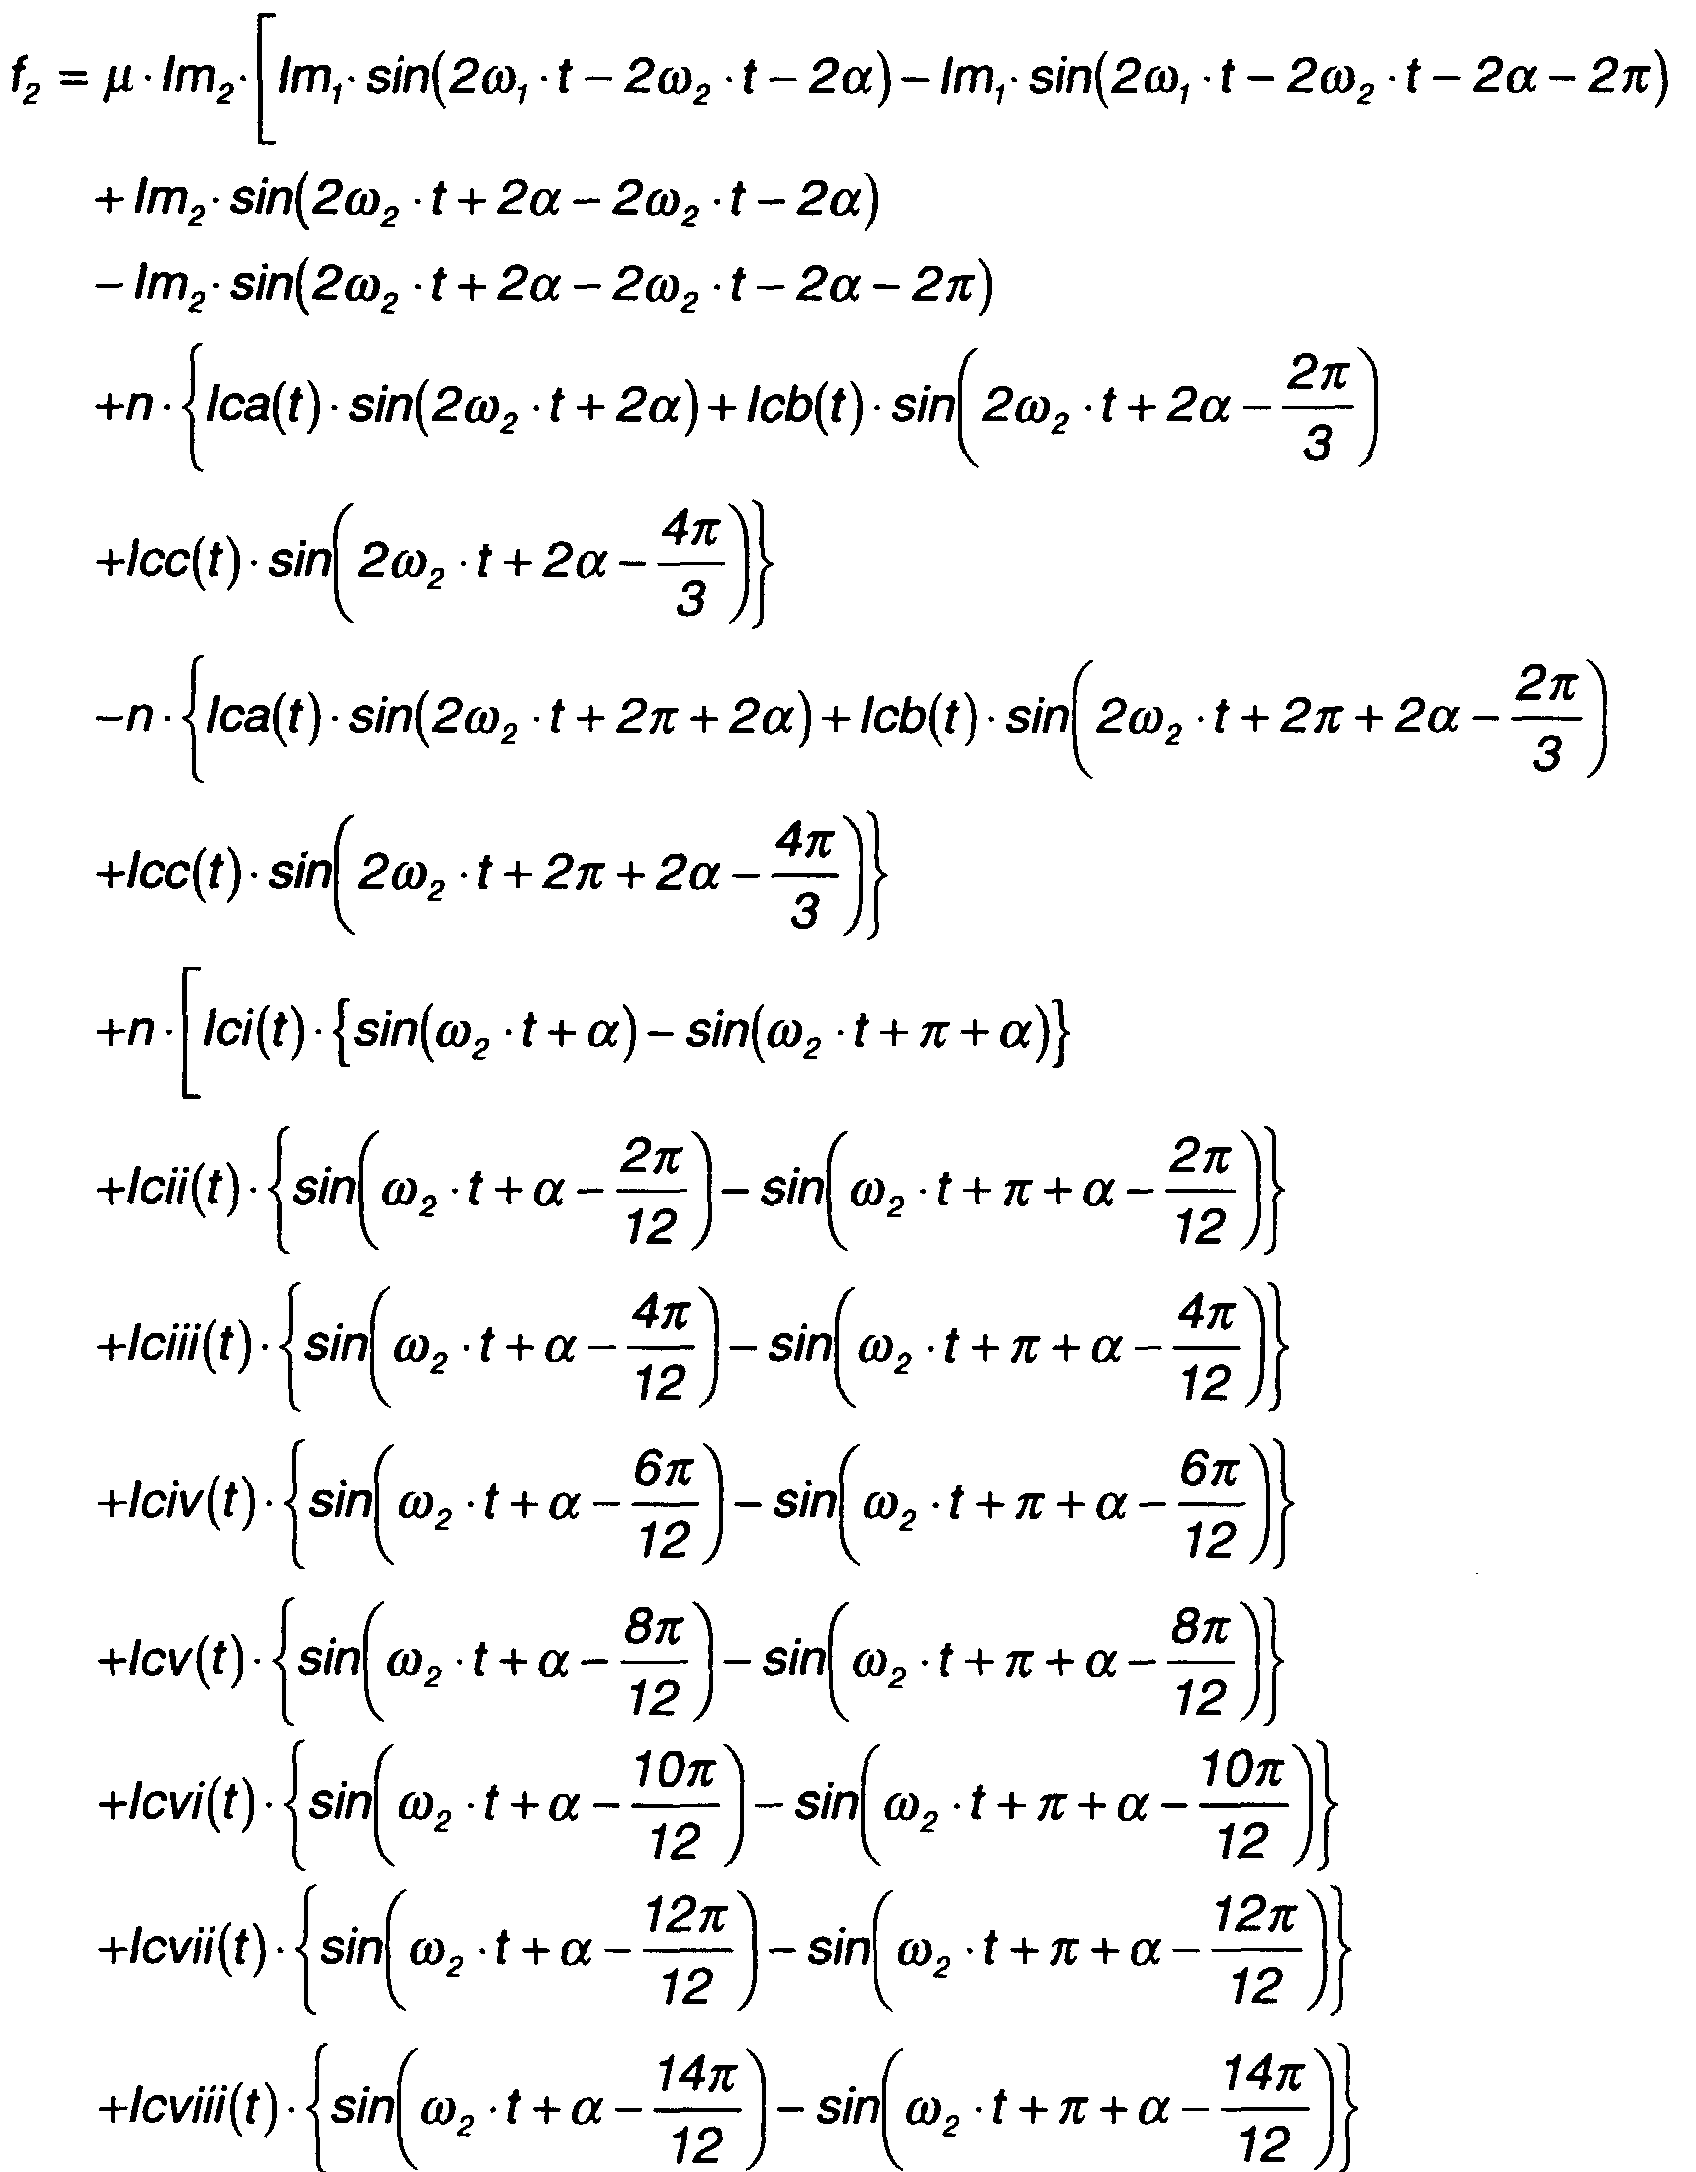 f₂ = μ · Im₂ · [ Im₁ · sin(2ω₁ · t − 2ω₂ · t − 2α) − Im₁ · sin(2ω₁ · t − 2ω₂ · t − 2α − 2π)
+ Im₂ · sin(2ω₂ · t + 2α − 2ω₂ · t − 2α)
− Im₂ · sin(2ω₂ · t + 2α − 2ω₂ · t − 2α − 2π)
+n · {Ica(t) · sin(2ω₂ · t + 2α) + Icb(t) · sin(2ω₂ · t + 2α − 2π/3)
+Icc(t) · sin(2ω₂ · t + 2α − 4π/3)}
-n · {Ica(t) · sin(2ω₂ · t + 2π + 2α) + Icb(t) · sin(2ω₂ · t + 2π + 2α − 2π/3)
+Icc(t) · sin(2ω₂ · t + 2π + 2α − 4π/3)}
+n · [ Ici(t) · {sin(ω₂ · t + α) − sin(ω₂ · t + π + α)}
+Icii(t) · {sin(ω₂ · t + α − 2π/12) − sin(ω₂ · t + π + α − 2π/12)}
+Iciii(t) · {sin(ω₂ · t + α − 4π/12) − sin(ω₂ · t + π + α − 4π/12)}
+Iciv(t) · {sin(ω₂ · t + α − 6π/12) − sin(ω₂ · t + π + α − 6π/12)}
+Icv(t) · {sin(ω₂ · t + α − 8π/12) − sin(ω₂ · t + π + α − 8π/12)}
+Icvi(t) · {sin(ω₂ · t + α − 10π/12) − sin(ω₂ · t + π + α − 10π/12)}
+Icvii(t) · {sin(ω₂ · t + α − 12π/12) − sin(ω₂ · t + π + α − 12π/12)}
+Icviii(t) · {sin(ω₂ · t + α − 14π/12) − sin(ω₂ · t + π + α − 14π/12)}